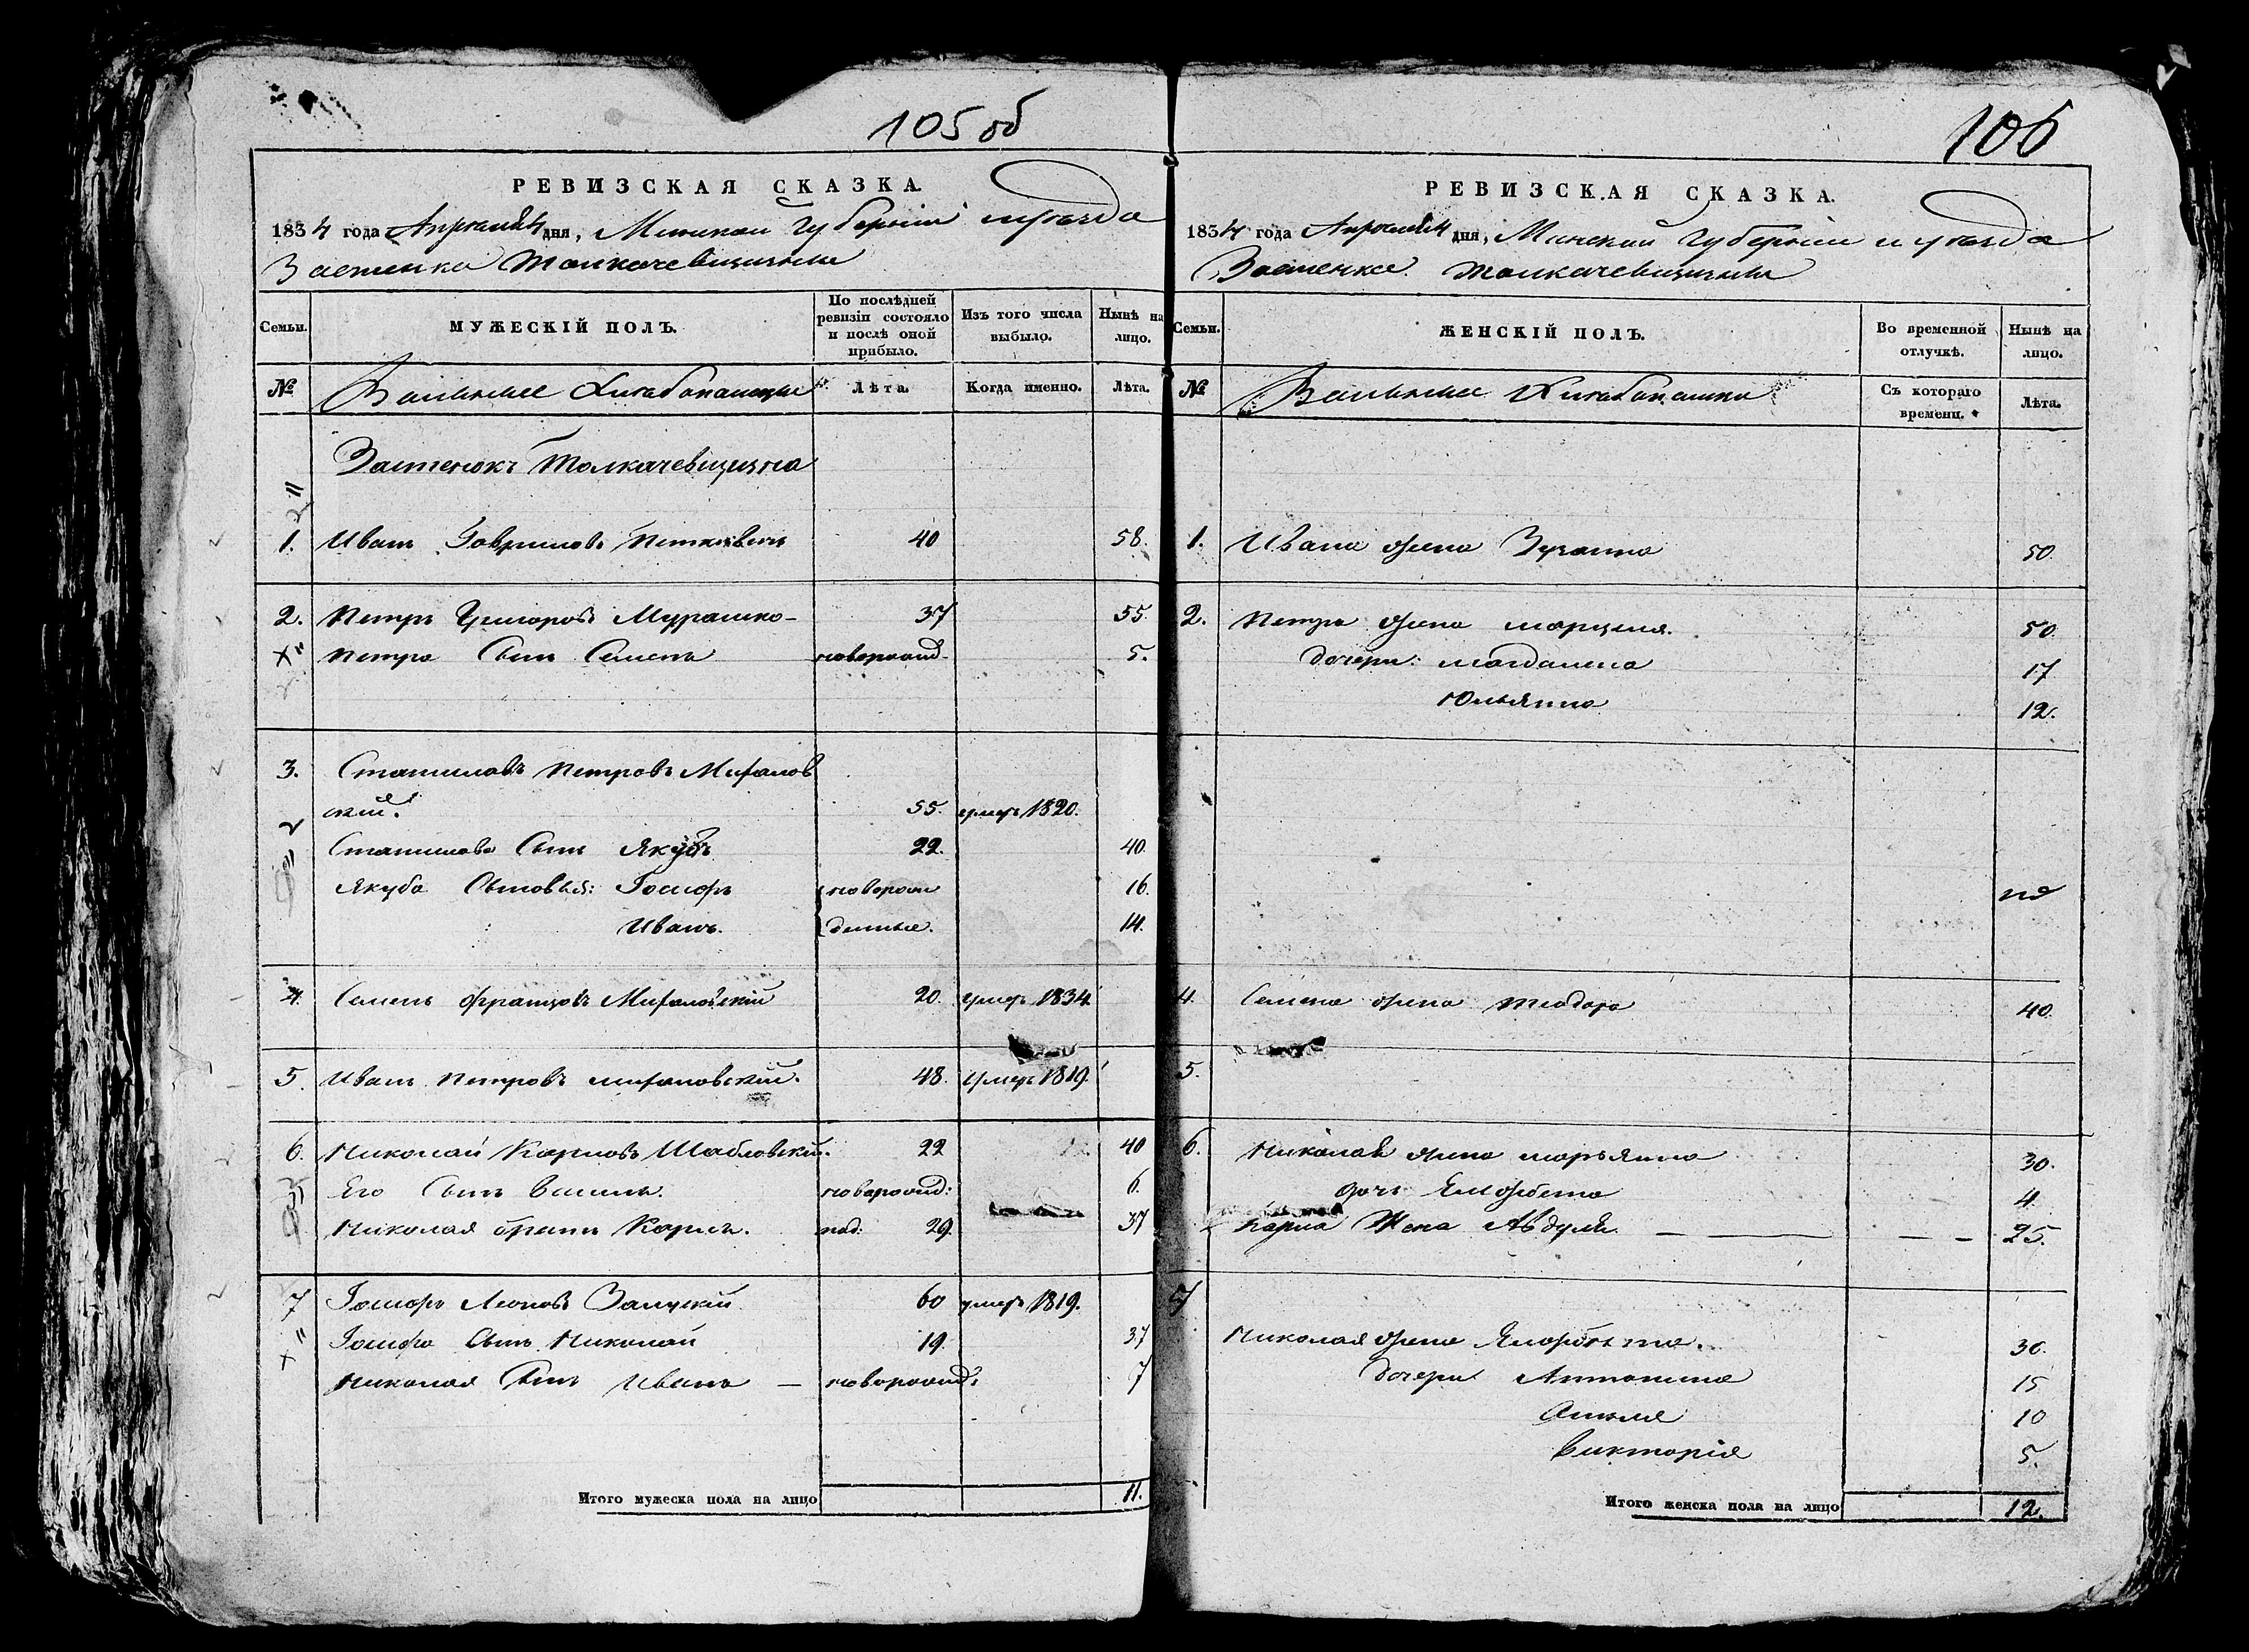 105 об
РЕВИЗСКАЯ СКАЗКА.
1834 года Апреля 24 дня, Минской Губернии и уезда
Застенка Толкачевищизны
Семьи.
МУЖЕСКІЙ ПОЛЪ.
По послѣдней ревизіи состояло и послѣ оной прибыло.
Изъ того числа выбыло.
Нынѣ на лицо.
№
Вольные Хлебопашцы
Лѣта.
Когда именно.
Лѣта.
Застенокъ Толкачевищизна
1. Иванъ Гавриловъ Петкевичъ 40 58.
2. Петръ Григоровъ Мурашко- 37 55.
Петра Сынъ Семенъ новорожд- 5.
3. Станиславъ Петровъ Мифалов
скій. 55. умеръ 1820.
Станислава Сынъ Якубъ 22. 40.
Якуба Сыновья: Іосифъ новорож 16.
Иванъ. денные. 14.
4. Семенъ Францовъ Мифаловскій 20. умеръ 1834
5. Иванъ Петровъ Мифаловскій. 48. Умеръ 1819.
6. Николай Карповъ Шабловскій. 22 40
Его Сынъ Василь. новорожд: 6.
Николая братъ Карпъ. 29. 37
7 Іосифъ Леоновъ Залускій 60 умеръ 1819.
Іосифа Сынъ Николай 19. 37
Николая Сынъ Иванъ — новорожд: 7
Итого мужеска пола на лицо 11.
106
РЕВИЗСКАЯ СКАЗКА.
1834 года Апреля 24 дня, Минской Губерніи и уезда
Застенка Толкачевищизны
Семьи.
ЖЕНСКІЙ ПОЛЪ.
Во временной отлучкѣ.
Нынѣ на лицо.
№
Вольные Хлебопашцы
Съ котораго времени.
Лѣта.
1. Ивана жена Зузанна 50.
2. Петра жена Марцеля. 50
дочери: Магдалена 17
Юльянна 12.
4. Семена жена Теодора 40.
5.
6. Николая жена Марьянна 30.
дочь Елизбета 4
Карпа Жена Авдуля. — — — — 25.
7
Николая жена Елизбѣта. 30.
дочери Антонина 15
Анеля 10
Викторія 5.
Итого женска пола на лицо 12.